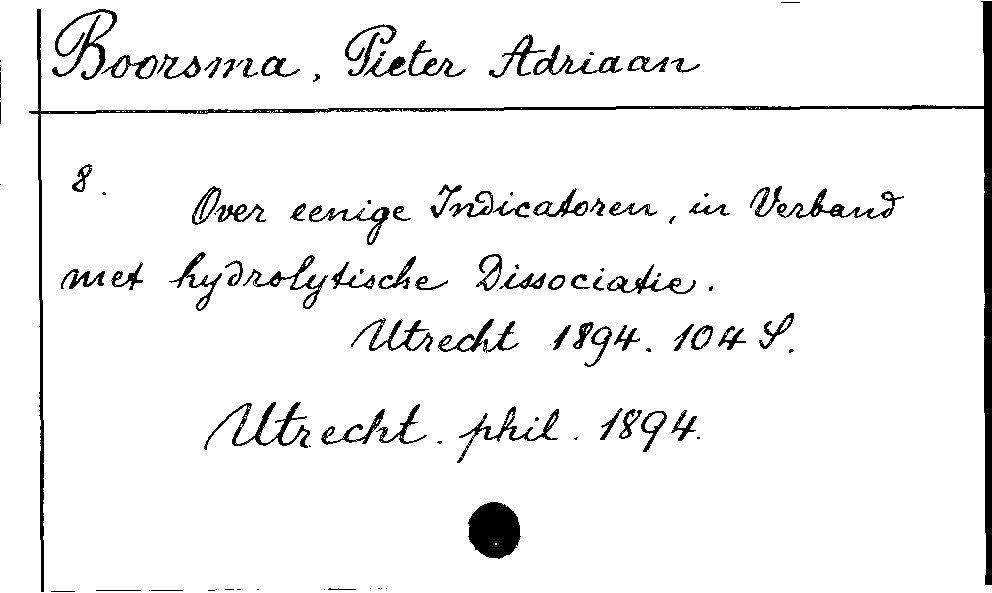 Boorsma, Pieter Adriaan
8.
Over eenige Indicatoren, in Verband
met hydrolytische Dissociatie.
Utrecht 1894. 104 S.
Utrecht. phil. 1894.